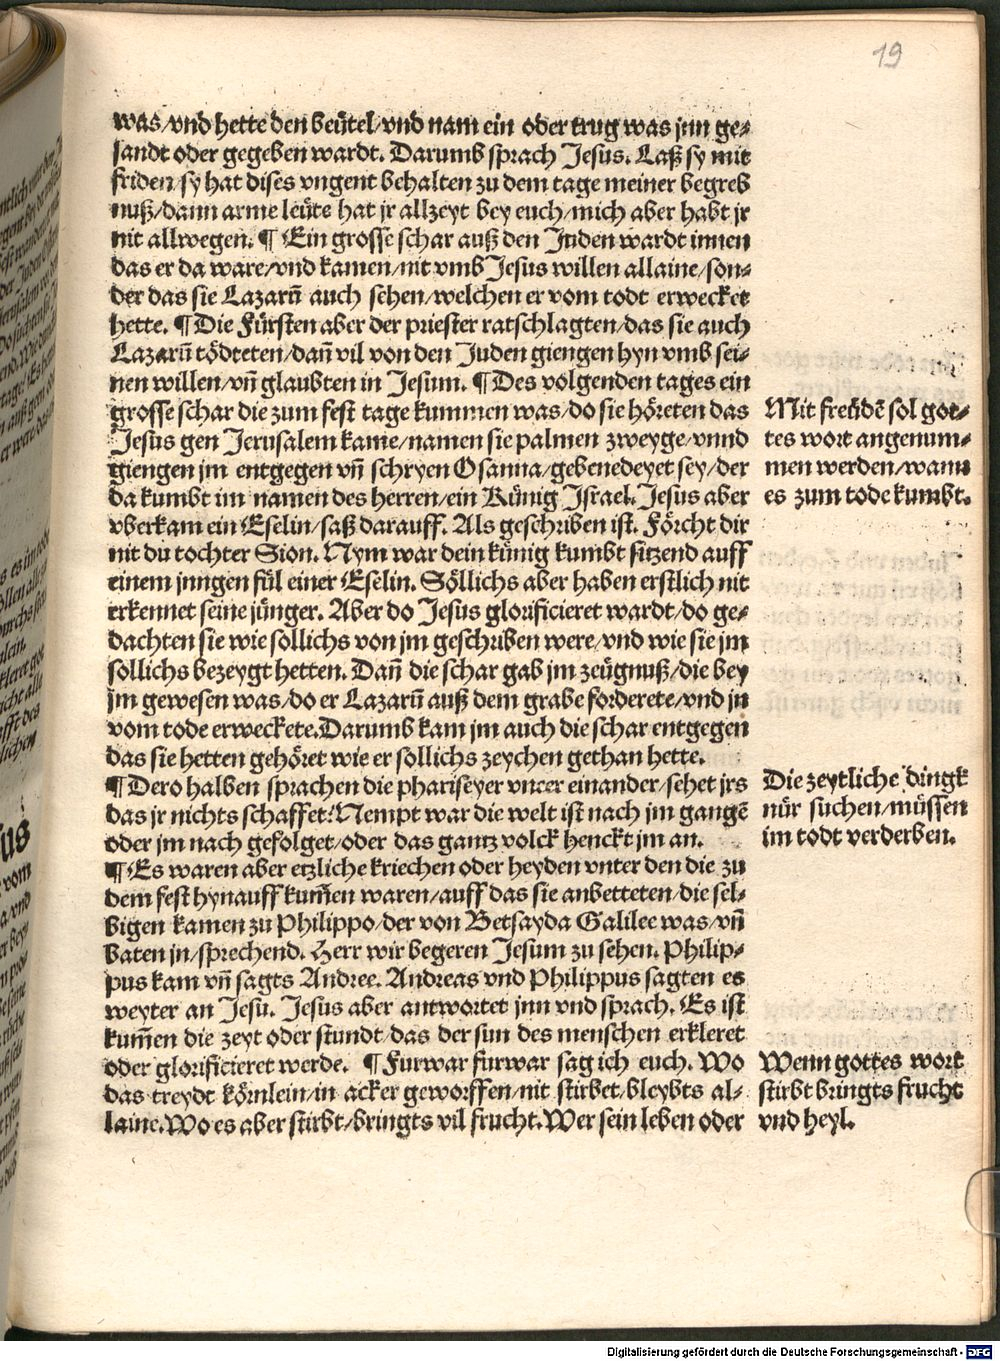 19
was/vnd hette den beütel/vnd nam ein oder trug was jnn ge⸗
sandt oder gegeben wardt. Darumb sprach Jesus. Laß sy mit
friden/sy hat dises vngent behalten zu dem tage meiner begreb
nuß/dann arme leüte hat jr allzeyt bey euch/mich aber habt jr
nit allwegen. ¶ Ein grosse schar auß den Juden wardt innen
das er da ware/vnd kamen/nit vmb Jesus willen allaine/son⸗
der das sie Lazarū auch sehen/welchen er vom todt erwecket
hette. ¶ Die Fürsten aber der priester ratschlagten/das sie auch
Lazarū tödteten/dañ vil von den Juden giengen hyn vmb sei⸗
nen willen/vñ glaubten in Jesum. ¶ Des volgenden tages ein
grosse schar die zum fest tage kummen was/do sie höreten das
Jesus gen Jerusalem kame/namen sie palmen zweyge/vnnd
giengen jm entgegen vñ schryen Osanna/gebenedeyet sey/der
da kumbt im namen des herren/ein Künig Israel. Jesus aber
vberkam ein Eselin/saß darauff. Als geschriben ist. Förcht dir
nit du tochter Sion. Nym war dein künig kumbt sitzend auff
einem jungen fül einer Eselin. Söllichs aber haben erstlich nit
erkennet seine jünger. Aber do Jesus glorificieret wardt/do ge⸗
dachten sie wie sollichs von jm geschriben were/vnd wie sie jm
sollichs bezeygt hetten. Dañ die schar gab jm zeügnuß/die bey
jm gewesen was/do er Lazarū auß dem grabe forderete/vnd jn
vom tode erweckete. Darumb kam jm auch die schar entgegen
das sie hetten gehöret wie er sollichs zeychen gethan hette.
¶ Dero halben sprachen die phariseyer vnter einander/sehet jrs
das jr nichts schaffet? Nempt war die welt ist nach jm gangē
oder jm nach gefolget/oder das gantz volck henckt jm an.
¶ Es waren aber etzliche kriechen oder heyden vnter den die zu
dem fest hynauff kum̄en waren/auff das sie anbetteten/die sel⸗
bigen kamen zu Philippo/der von Betsayda Galilee was/vñ
baten jn/sprechend. Herr wir begeren Jesum zu sehen. Philip⸗
pus kam vñ sagts Andree. Andreas vnd Philippus sagten es
weyter an Jesu. Jesus aber antwortet jnn vnd sprach. Es ist
kum̄en die zeyt oder stundt/das der sun des menschen erkleret
oder glorificieret werde. ¶ Furwar furwar sag ich euch. Wo
das treydt körnlein/in acker geworffen/nit stirbet/bleybts al⸗
laine. Wo es aber stirbt/bringts vil frucht. Wer sein leben oder
Mit freüdē sol got⸗
tes wort angenum⸗
men werden/wann
es zum tode kumbt.
Die zeytliche dingk
nür suchen/müssen
im todt verderben.
Wenn gottes wort
stirbt bringts frucht
vnd heyl.
Digitalisierung gefördert durch die Deutsche Forschungsgemeinschaft - DFG